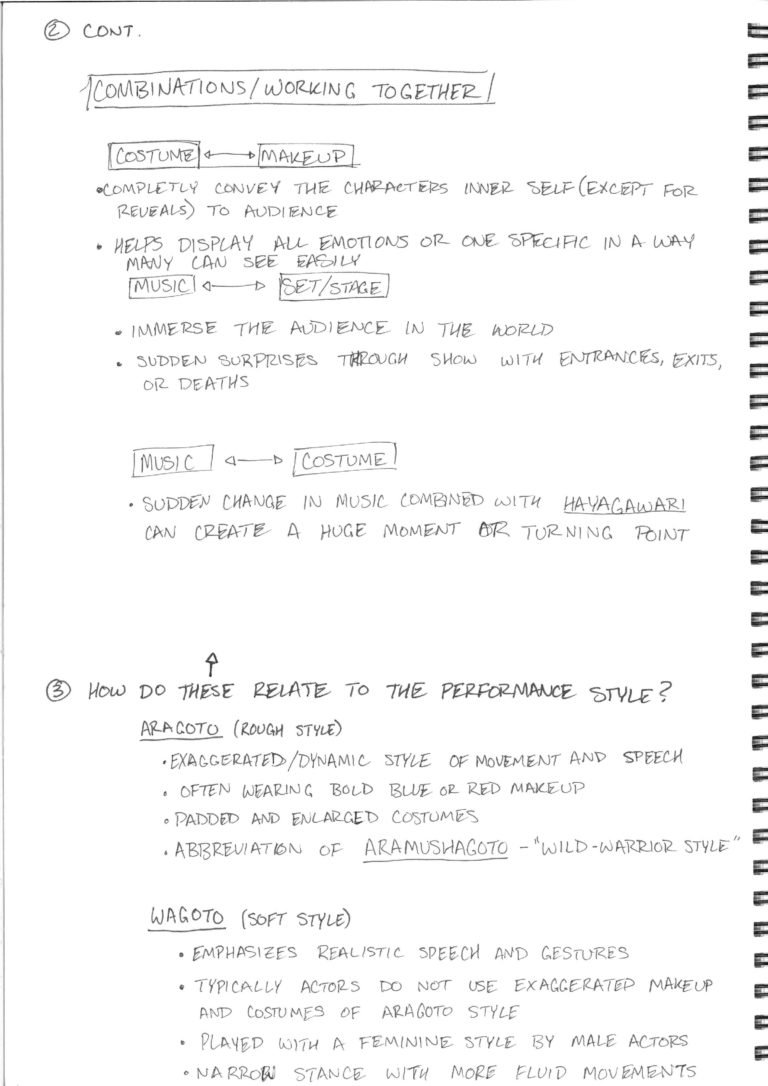 ② CONT.
COMBINATIONS/WORKING TOGETHER
COSTUME ↔ MAKEUP
• COMPLETLY CONVEY THE CHARACTERS INNER SELF (EXCEPT FOR
REVEALS) TO AUDIENCE
• HELPS DISPLAY ALL EMOTIONS OR ONE SPECIFIC IN A WAY
MANY CAN SEE EASILY
MUSIC ↔ SET/STAGE
• IMMERSE THE AUDIENCE IN THE WORLD
• SUDDEN SURPRISES THROUGH SHOW WITH ENTRANCES, EXITS,
OR DEATHS
MUSIC ↔ COSTUME
• SUDDEN CHANGE IN MUSIC COMBINED WITH HAYAGAWARI
CAN CREATE A HUGE MOMENT OR TURNING POINT
↑
③ HOW DO THESE RELATE TO THE PERFORMANCE STYLE?
ARAGOTO (ROUGH STYLE)
• EXAGGERATED/DYNAMIC STYLE OF MOVEMENT AND SPEECH
• OFTEN WEARING BOLD BLUE OR RED MAKEUP
• PADDED AND ENLARGED COSTUMES
• ABBREVIATION OF ARAMUSHAGOTO - "WILD-WARRIOR STYLE"
WAGOTO (SOFT STYLE)
• EMPHASIZES REALISTIC SPEECH AND GESTURES
• TYPICALLY ACTORS DO NOT USE EXAGGERATED MAKEUP
AND COSTUMES OF ARAGOTO STYLE
• PLAYED WITH A FEMININE STYLE BY MALE ACTORS
• NARROW STANCE WITH MORE FLUID MOVEMENTS